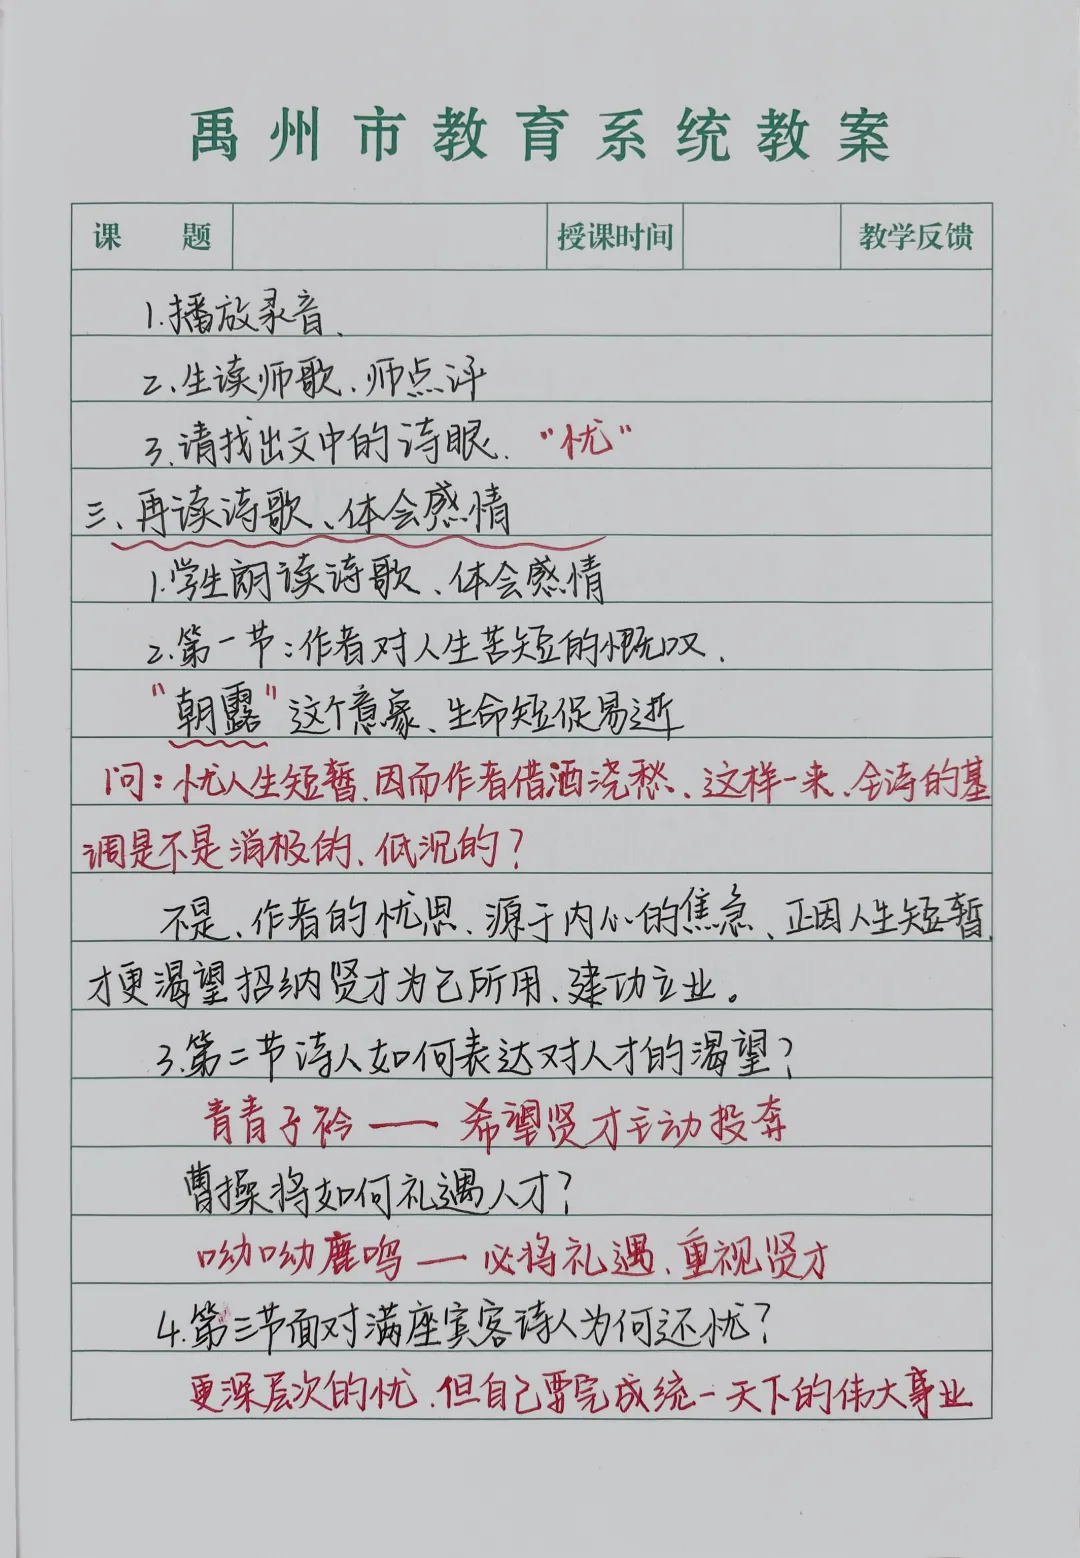 禹州市教育系统教案
课 题 授课时间 教学反馈
1.播放录音、
2、生读师歌、师点评
3、请找出文中的诗眼. “忧”
三、再读诗歌、体会感情
1.学生朗读诗歌、体会感情
2.第一节:作者对人生苦短的慨叹.
“朝露”这个意象、生命短促易逝
问:忧人生短暂、因而作者借酒浇愁、这样一来、全诗的基
调是不是消极的、低沉的?
不是、作者的忧思、源于内心的焦急、正因人生短暂、
才更渴望招纳贤才为己所用、建功立业。
3.第二节诗人如何表达对人才的渴望?
青青子衿——希望贤才主动投奔
曹操将如何礼遇人才?
呦呦鹿鸣——必将礼遇、重视贤才
4.第三节面对满座宾客诗人为何还忧?
更深层次的忧、但自己要完成统一天下的伟大事业